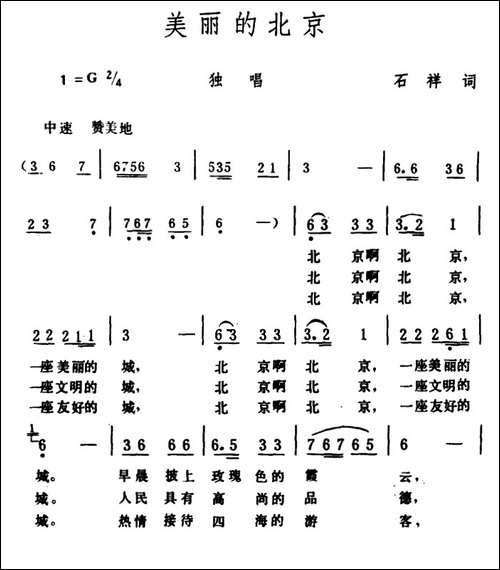 美丽的北京
1=G 2/4 独唱 石祥 词
中速 赞美地
(3 6 7 | 6756 3 | 535 21 | 3 — | 6.6 36 |
23 7 | 767 65 | 6 —) | 63 33 | 3.2 1 |
北 京啊 北 京,
北 京啊 北 京,
北 京啊 北 京,
22 2211 | 3 — | 63 33 | 3.2 1 | 22 261 |
一座美丽的 城, 北 京啊 北 京, 一座美丽的
一座文明的 城, 北 京啊 北 京, 一座文明的
一座友好的 城, 北 京啊 北 京, 一座友好的
1
6 — | 36 66 | 6.5 33 | 76765 | 6 — |
城。 早晨 披上 玫瑰 色的 霞 云,
城。 人民 具有 高 尚的 品 德,
城。 热情 接待 四 海的 游 客,